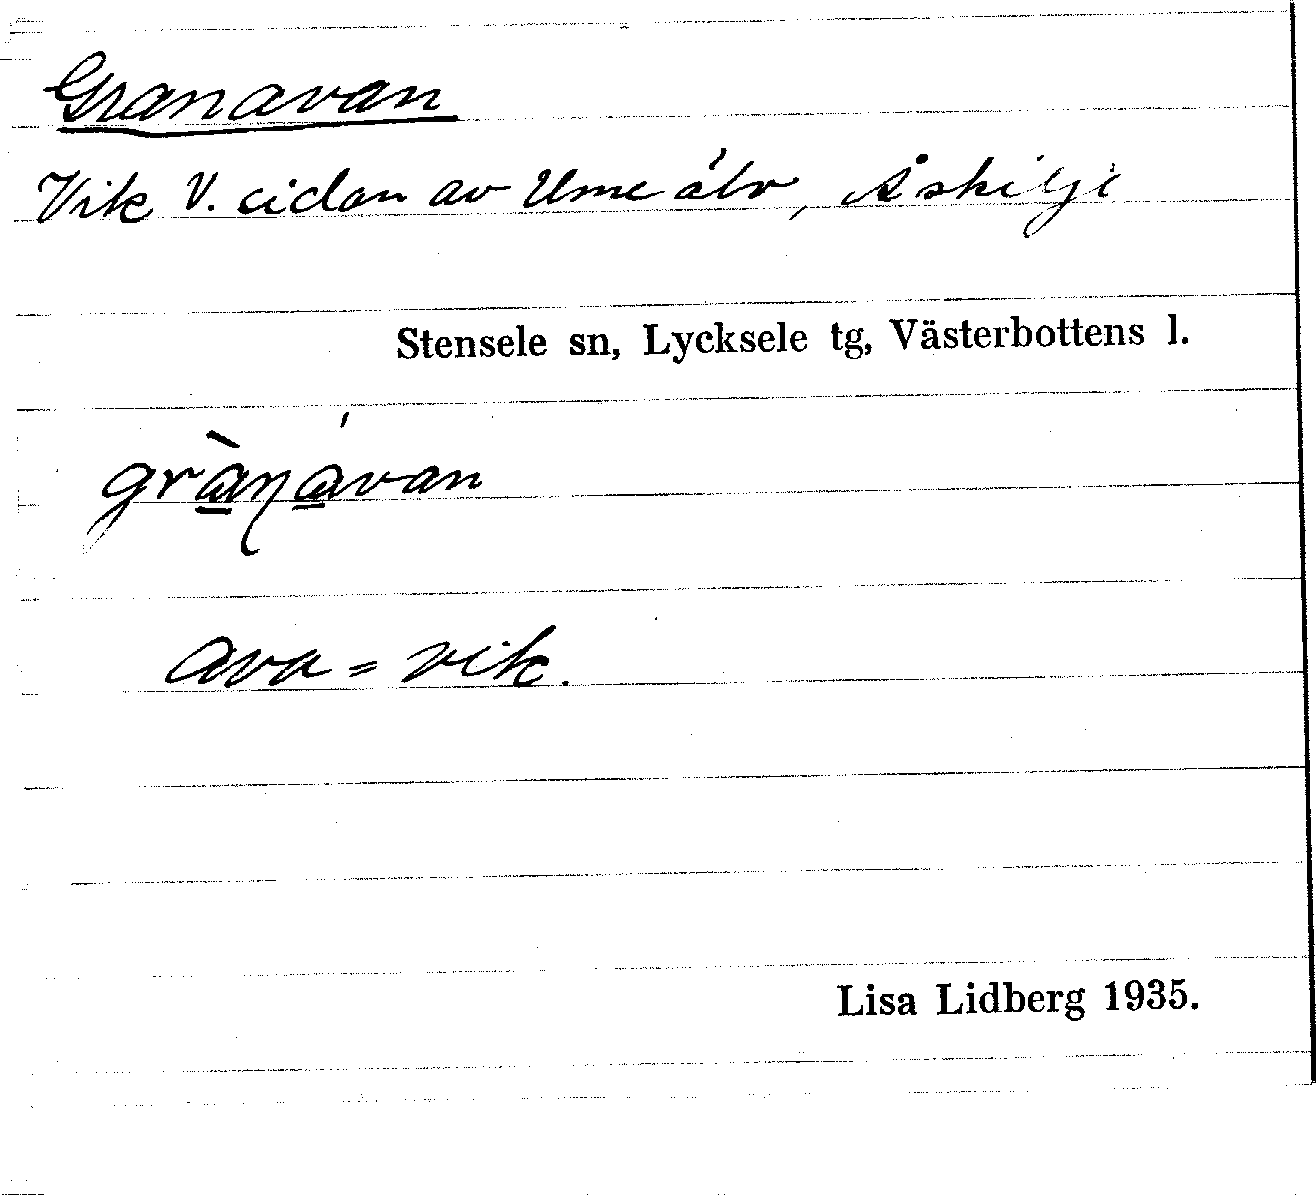 Granavan
Vik V. sidan av Ume älv, Åskilje
Stensele sn, Lycksele tg, Västerbottens l.
grànávan
ava = vik.
Lisa Lidberg 1935.